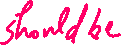 should be